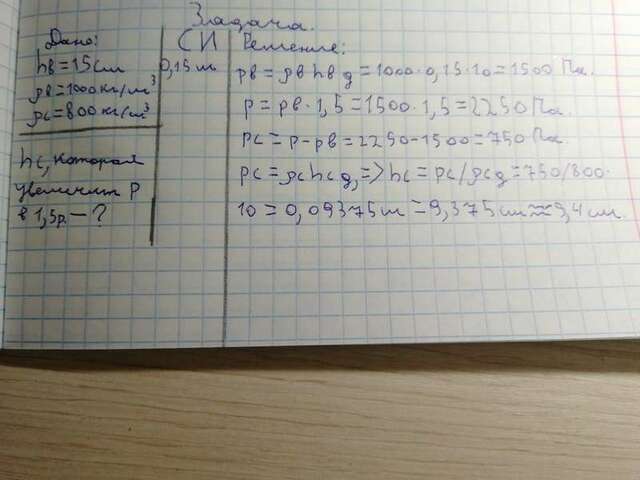 Задача.
Дано:
hв=15см
ρв=1000кг/м³
ρс=800кг/м³
hс, которая
увеличит P
в 1,5р. — ?
СИ
0,15м
Решение:
pв=ρв hв g=1000·0,15·10=1500 Па.
p=pв·1,5=1500·1,5=2250 Па.
pс=p-pв=2250-1500=750 Па.
pс=ρс hс g, => hс=pс/ρсg=750/800·
10=0,09375м=9,375см≈9,4 см.